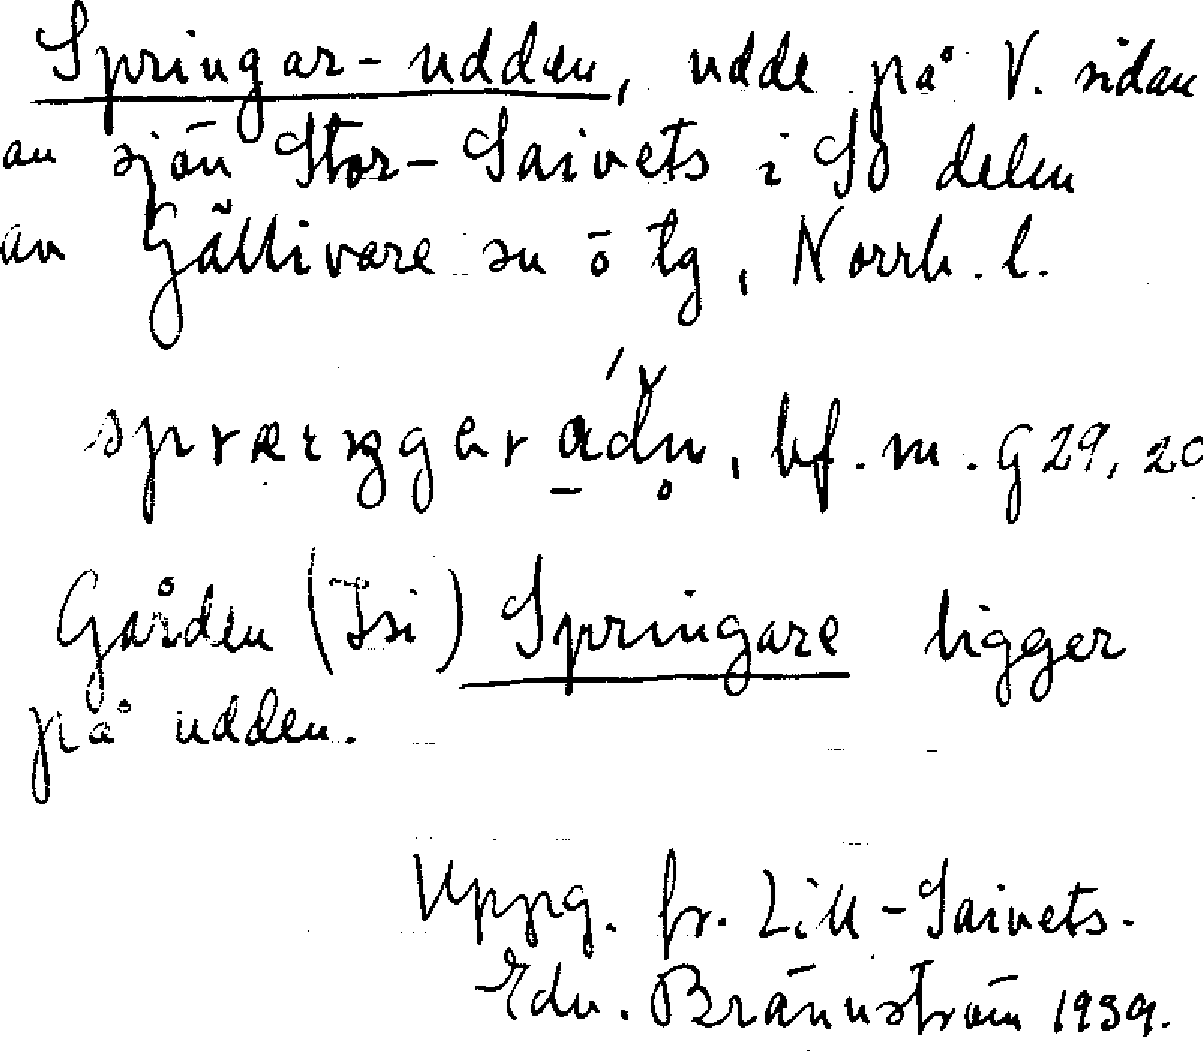 Springar-udden, udde på V. sidan
av sjön Stor-Saivets i SÖ delen
av Gällivare sn ö tg, Norrb. l.
bf. m. G 29, 20
Gården (Isi) Springare ligger
på udden.
Uppg. fr. Lill-Saivets.
Edv. Brännström 1939.